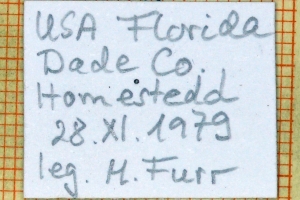 USA Florida
Dade Co.
Homestedd
28.XI.1979
leg. H. Furr